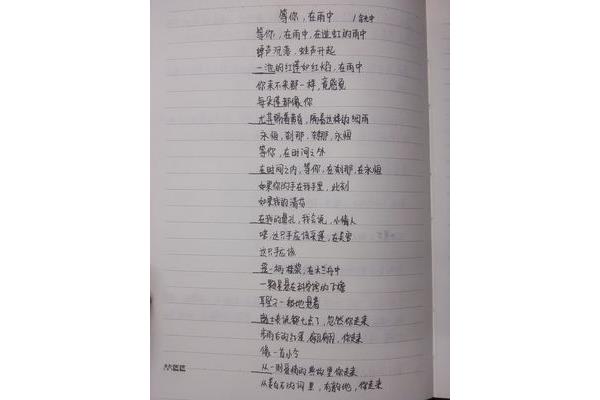 等你,在雨中 / 余光中
等你,在雨中,在造虹的雨中
蝉声沉落,蛙声升起
一池的红莲如红焰,在雨中
你来不来都一样,竟感觉
每朵莲都像你
尤其隔着黄昏,隔着这样的细雨
永恒,刹那,刹那,永恒
等你,在时间之外
在时间之内,等你,在刹那,在永恒
如果你的手在我手里,此刻
如果你的清芬
在我的鼻孔,我会说,小情人
诺,这只手应该采莲,在吴宫
这只手应该
摇一柄桂桨,在木兰舟中
一颗星悬在科学馆的飞檐
耳坠子一般地悬着
瑞士表说都七点了,忽然你走来
步雨后的红莲,翩翩,你走来
像一首小令
从一则爱情的典故里你走来
从姜白石的词里,有韵地,你走来